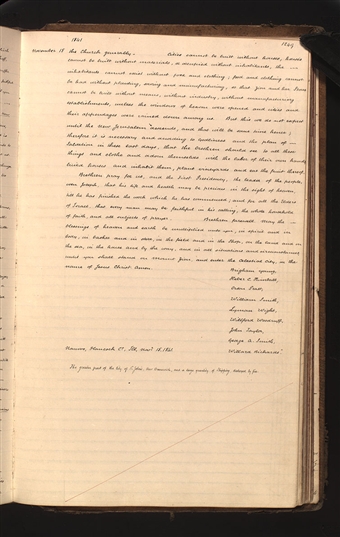 1841
1249
November 15 the Church generally. Cities cannot be built without houses, houses
cannot be built without materials, or occupied without inhabitants, the
inhabitants cannot exist without food and clothing; food and clothing cannot
be had without planting, sowing and manufacturing, so that Zion and her Stakes
cannot be built without means, without industry, without manufacturing
establishments, unless the windows of heaven were opened and cities and
their appendages were rained down among us. But this we do not expect
until the New Jerusalem descends, and that will be some time hence;
therefore it is necessary and according to the plan of
Salvation in these last days, that the brethren should see to all these
things and clothe and adorn themselves with the labor of their own hands,
build houses and inhabit them, plant vineyards and eat the fruit thereof.
Brethren pray for us, and the First Presidency, the leader of the people,
even Joseph, that his life and health may be precious in the sight of heaven,
till he has finished the work which he has commenced; and for all the Elders
of Israel, that every man may be faithful in his calling, the whole household
of faith, and all subjects of prayer. Brethren farewell. May the
blessings of heaven and earth be multiplied unto you, in spirit and in
body, in basket and in store, in the field and in the shop, on the land and on
the sea, in the house and by the way, and in all situations and circumstances,
until you shall stand on Mount Zion, and enter the Celestial city, in the
name of Jesus Christ. Amen.
Brigham Young,
Heber C. Kimball,
Orson Pratt,
William Smith,
Lyman Wight,
Wilford Woodruff,
John Taylor,
George A. Smith,
Willard Richards."
Nauvoo, Hancock Co., Ill, Nov. 15, 1841.
The greater part of the city of St. John, New Brunswick, and a large quantity of Shipping destroyed by fire